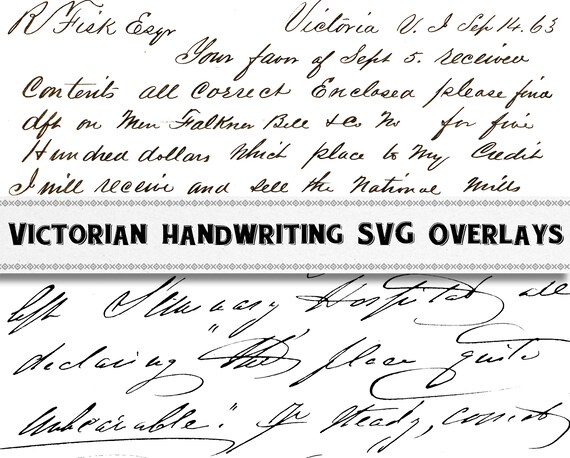 R Fisk Esqr Victoria V. I Sep 14. 63
Your favor of Sept 5. received
Contents all correct Enclosed please find
dft on Mess Falkner Bell & Co No for five
Hundred dollars Which place to My Credit
I will receive and sell the National Mills
VICTORIAN HANDWRITING SVG OVERLAYS
left Seminary Hospital, all
declaring "this place quite
unbearable."